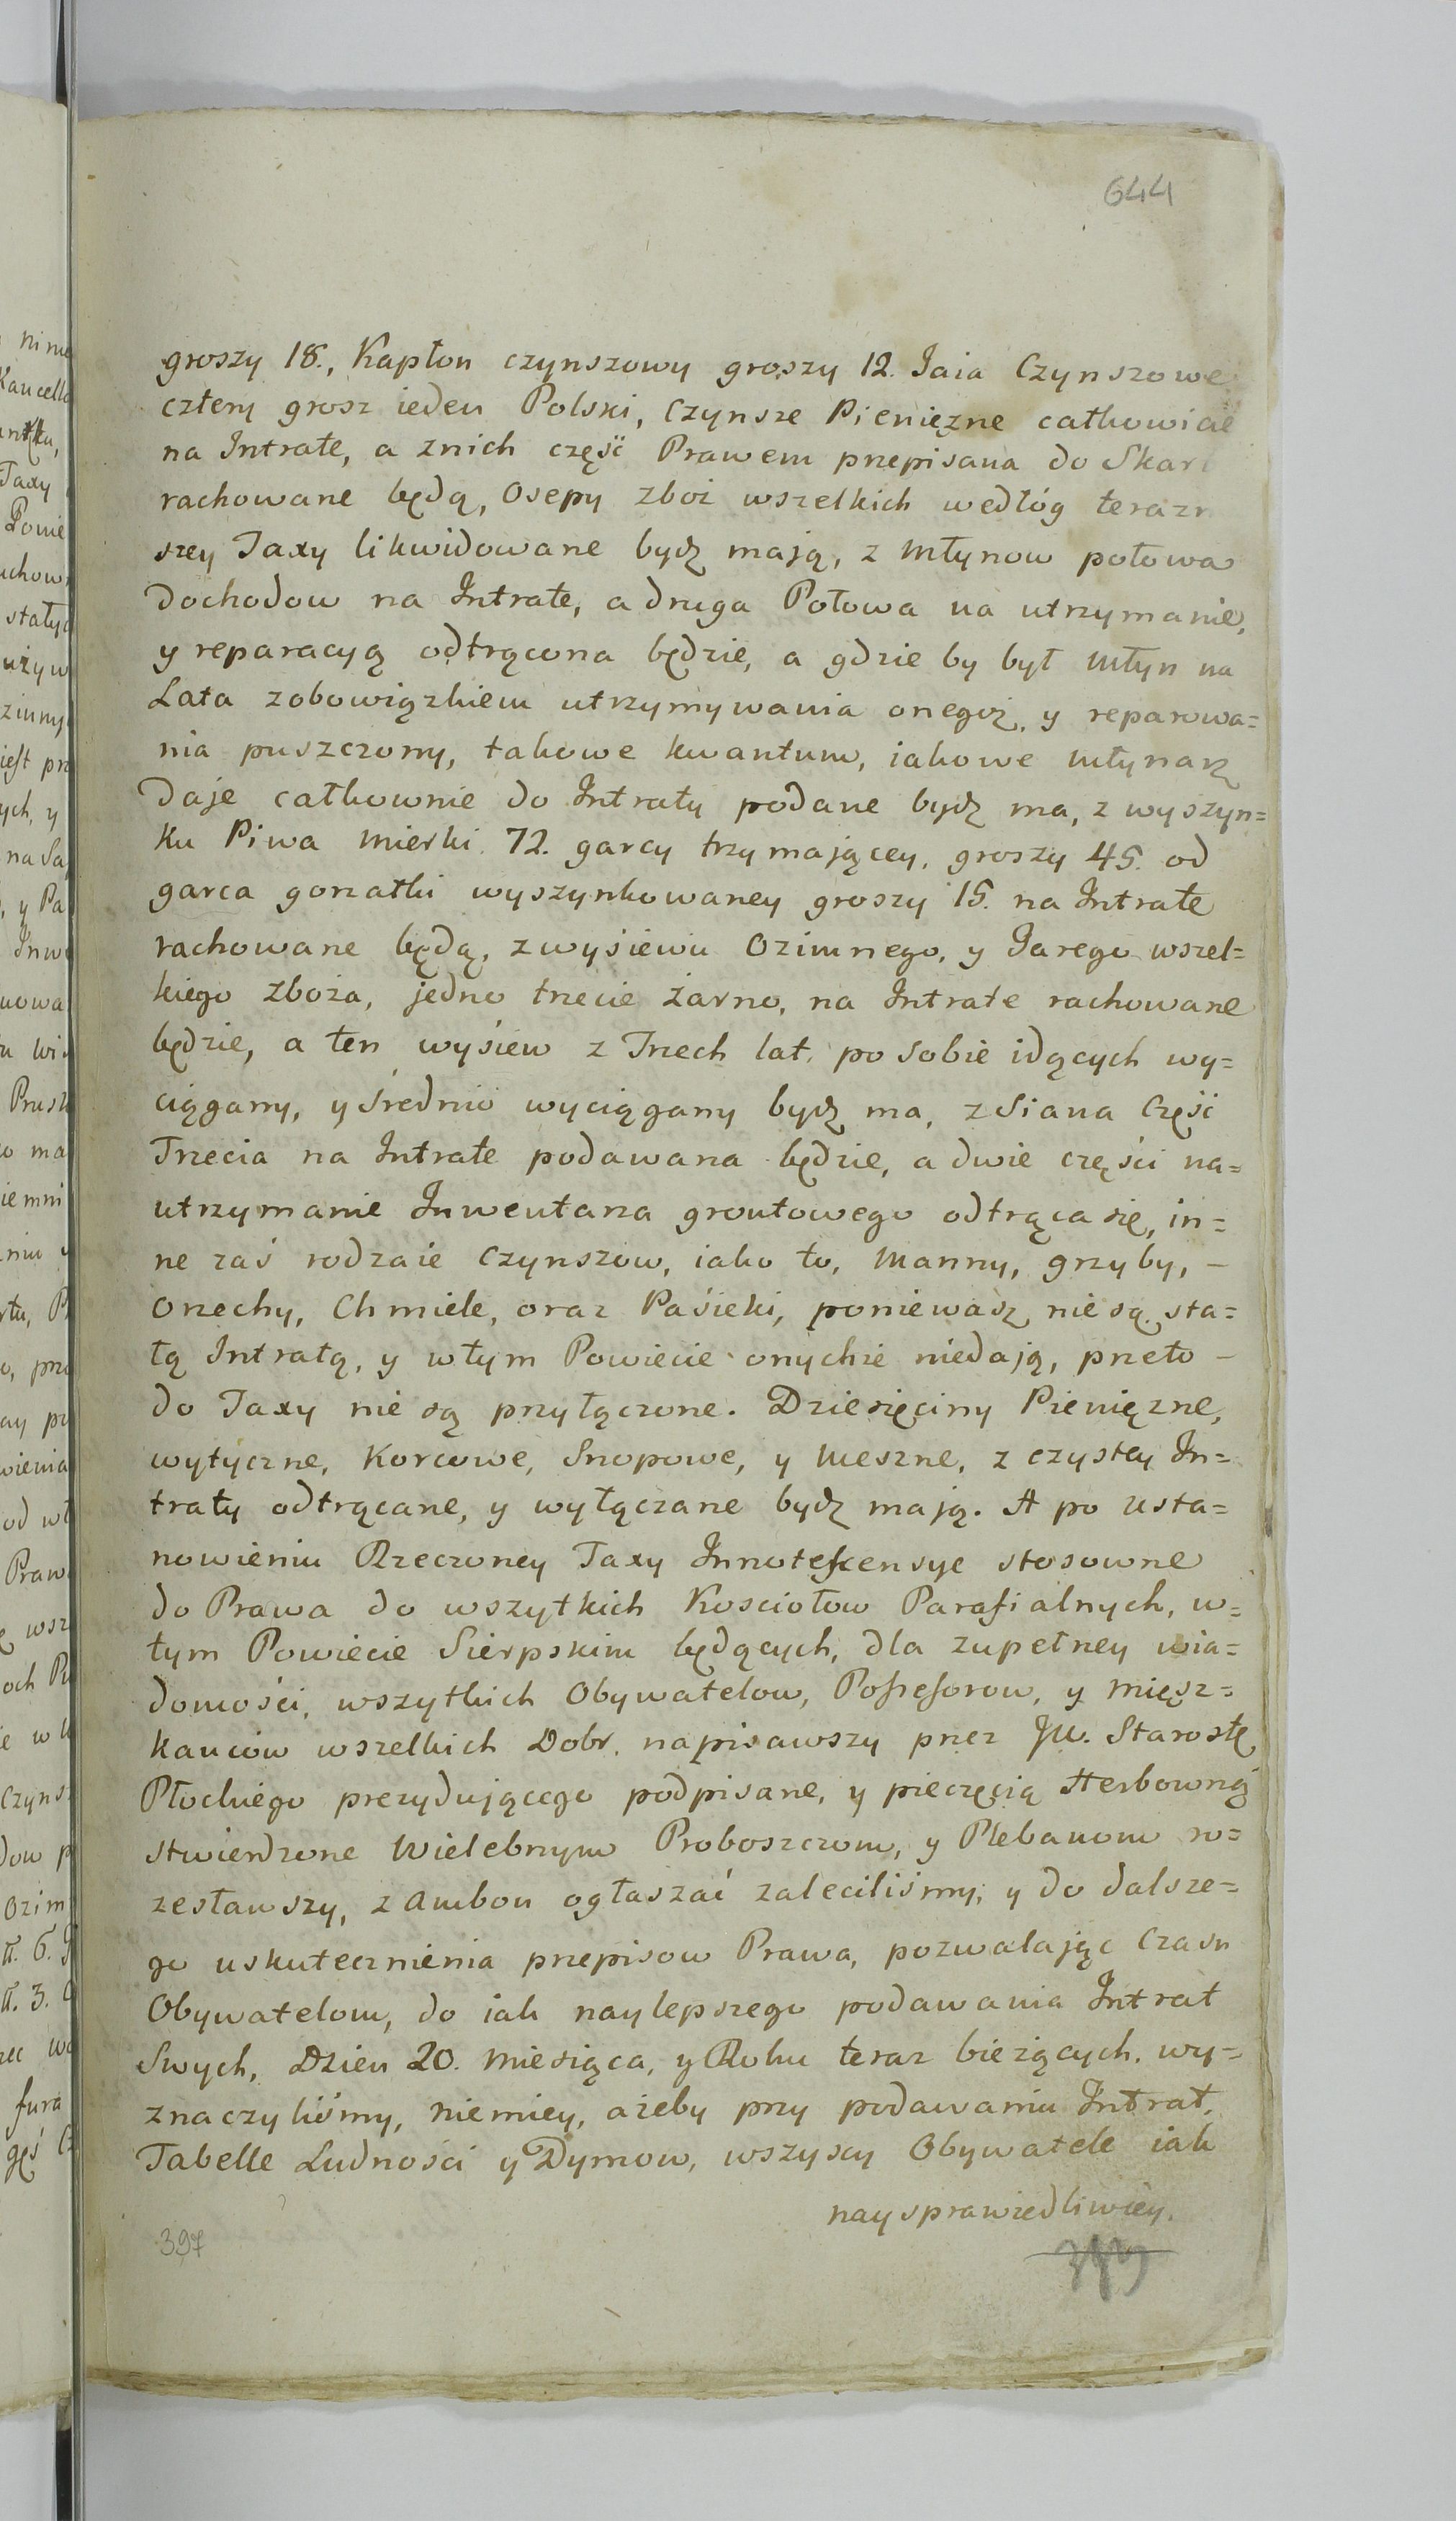 644
groszy 18., Kapłon czynszowy groszy 12. Jaia Czynszowe
cztery grosz ieden Polski, Czynsze Pieniężne całkowicie
na Intratę, a znich część Prawem przepisana do Skar
rachowane będą, Osepy zboż wszelkich wedłóg teraz
szey Taxy likwidowane bydź mają, z Młynow połowa
Dochodow na Intratę, a druga Połowa na utrzymanie,
y reparacyą odtrącona będzie, a gdzie by był Młyn na
Lata zobowiązkiem utrzymywania onegoż, y reparowa=
nia puszczony, takowe kwantum, iakowe Młynarz
Daje całkownie do Intraty podane bydź ma, z wyszyn=
ku Piwa Mierki 72. garcy trzymającey, groszy 45. od
garca gorzałki wyszynkowaney groszy 15. na Intratę
rachowane będą, z wysiewu Ozimnego, y Jarego wszel=
kiego Zboża, jedno trzecie żarno, na Intratę rachowane
będzie, a ten wysiew z Trzech lat po sobie idących wy=
ciągany, y średnio wyciągany bydź ma, z Siana Część
Trzecia na Intratę podawana będzie, a dwie części na=
utrzymanie Inwentarza grontowego odtrąca się, in=
ne zaś rodzaie Czynszow, iako to, Manny, grzyby, –
Orzechy, Chmiele, oraz Pasieki, poniewasz nie są sta=
łą Intratą, y wtym Powiecie onychże niedają, przeto –
do Taxy nie są przyłączone. Dziesięciny Pieniężne,
wytyczne, Korcowe, Snopowe, y Meszne, z czystey In=
traty odtrącane, y wyłączane bydź mają. A po usta=
nowieniu Rzeczoney Taxy Innotescensye stosowne
do Prawa do wszytkich Kosciołow Parafialnych, w=
tym Powiecie Sierpskim będących, dla zupełney wia=
domości, wszytkich Obywatelow, Possessorow, y Miesz=
kańców wszelkich Dobr, napisawszy przez JW. Starostę
Płockiego prezydującego podpisane, y pieczęcią Herbowną
stwierdzone Wielebnym Proboszczom, y Plebanom ro=
zesławszy, z Ambon ogłaszać zaleciliśmy, y do dalsze=
go uskutecznienia przepisow Prawa, pozwalając Czasu
Obywatelom, do iak naylepszego podawania Intrat
Swych, Dzien 20. Miesiąca, y Roku teraz bieżących, wy=
znaczyliśmy, niemiey, ażeby przy podawaniu Intrat,
Tabelle Ludności y Dymow, wszyscy Obywatele iak
naysprawiedliwiey,
397